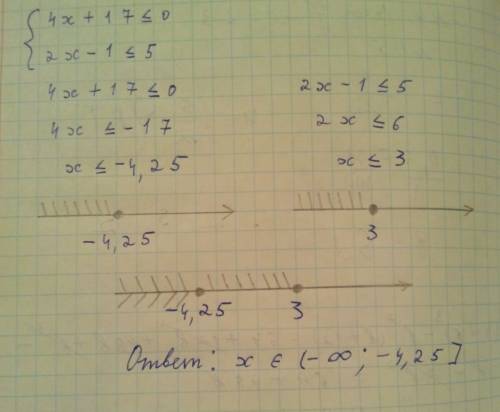 4x + 17 ≤ 0
2x - 1 ≤ 5
4x + 17 ≤ 0
4x ≤ -17
x ≤ -4,25
2x - 1 ≤ 5
2x ≤ 6
x ≤ 3
-4,25
3
-4,25 3
Ответ: x ∈ (-∞; -4,25]